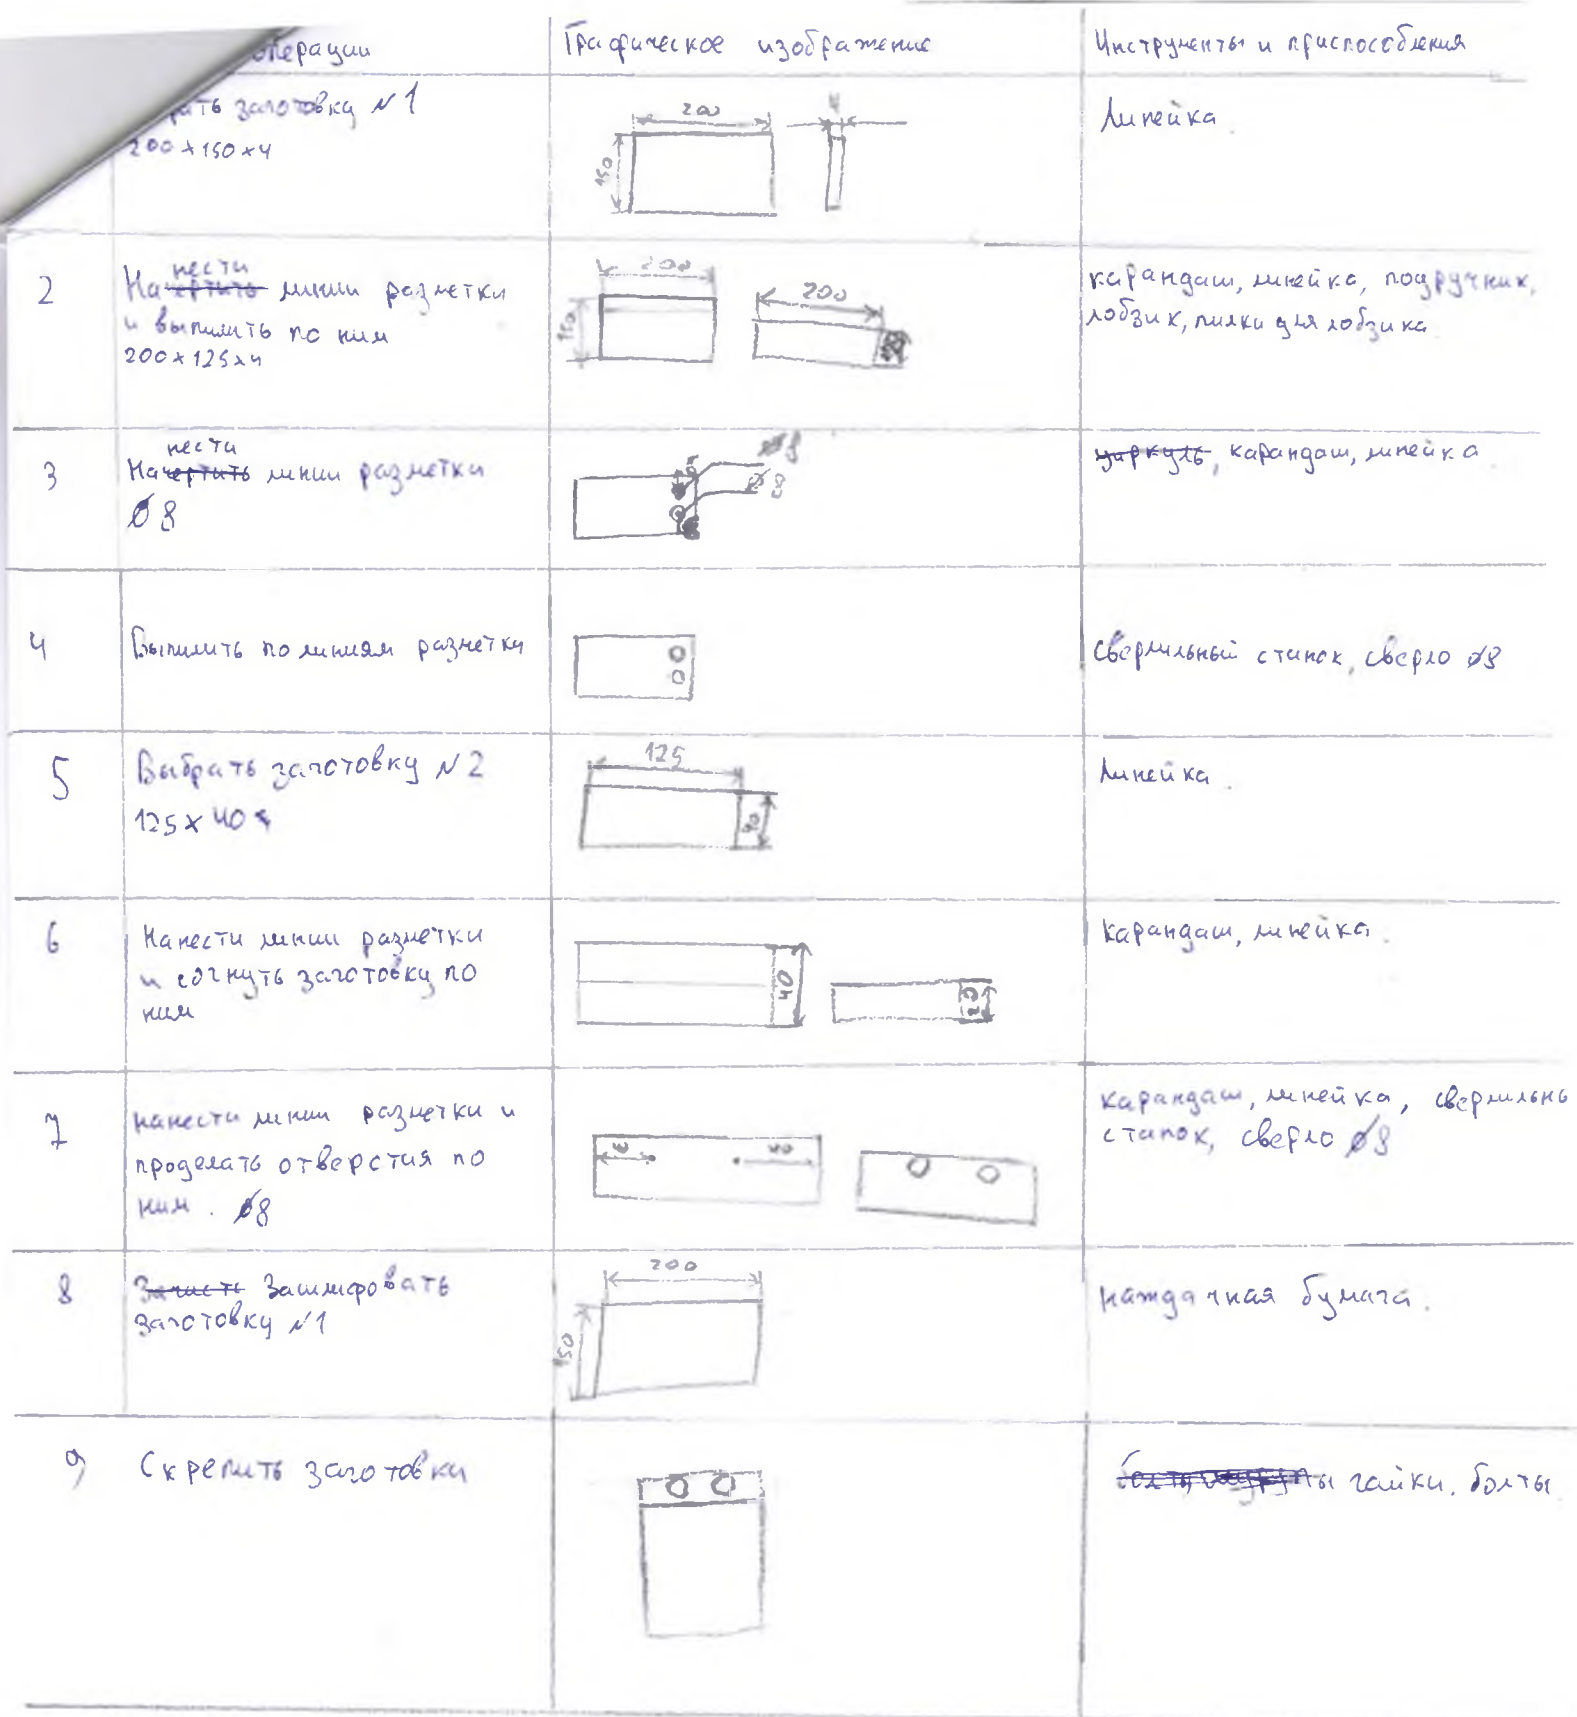 операции
Графическое изображение
Инструменты и приспособления
заготовку №1
200×150×4
200
4
150
Линейка.
2
нести
Начертить линии разметки
и выпилить по ним
200×125×4
200
150
200
карандаш, линейка, подручник,
лобзик, пилки для лобзика.
3
нести
Начертить линии разметки
Ø8
Ø8
Ø8
циркуль, карандаш, линейка
4
Выпилить по линиям разметки
сверлильный станок, сверло Ø8
5
Выбрать заготовку №2
125×40
125
40
Линейка.
6
Нанести линии разметки
и согнуть заготовку по
ним
40
20
карандаш, линейка.
7
нанести линии разметки и
проделать отверстия по
ним. Ø8
40
карандаш, линейка, сверлильнь
станок, сверло Ø8
8
Зашлифовать
заготовку №1
200
150
наждачная бумага.
9
Скрепить заготовки
гайки, болты